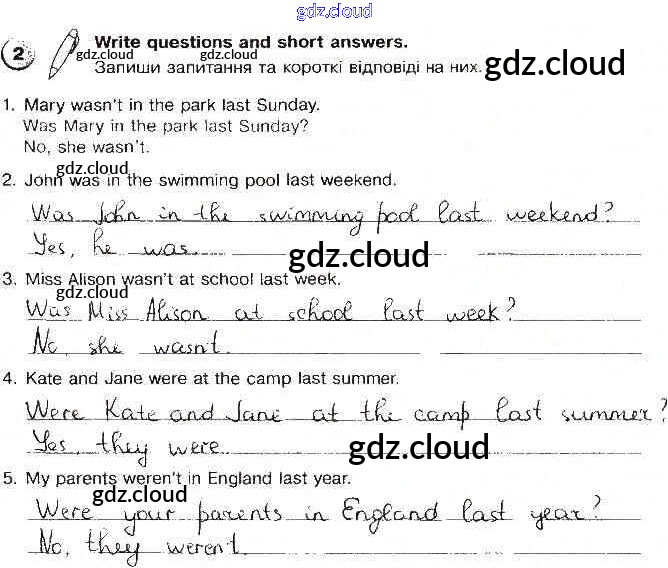 gdz.cloud
2 Write questions and short answers.
gdz.cloud gdz.cloud
Запиши запитання та короткі відповіді на них. gdz.cloud
1. Mary wasn't in the park last Sunday.
Was Mary in the park last Sunday?
No, she wasn't.
gdz.cloud
2. John was in the swimming pool last weekend.
Was John in the swimming pool last weekend?
Yes, he was.
gdz.cloud
3. Miss Alison wasn't at school last week.
gdz.cloud
Was Miss Alison at school last week?
No, she wasn't.
4. Kate and Jane were at the camp last summer.
Were Kate and Jane at the camp last summer?
Yes, they were.
gdz.cloud
5. My parents weren't in England last year.
gdz.cloud
Were your parents in England last year?
No, they weren't.